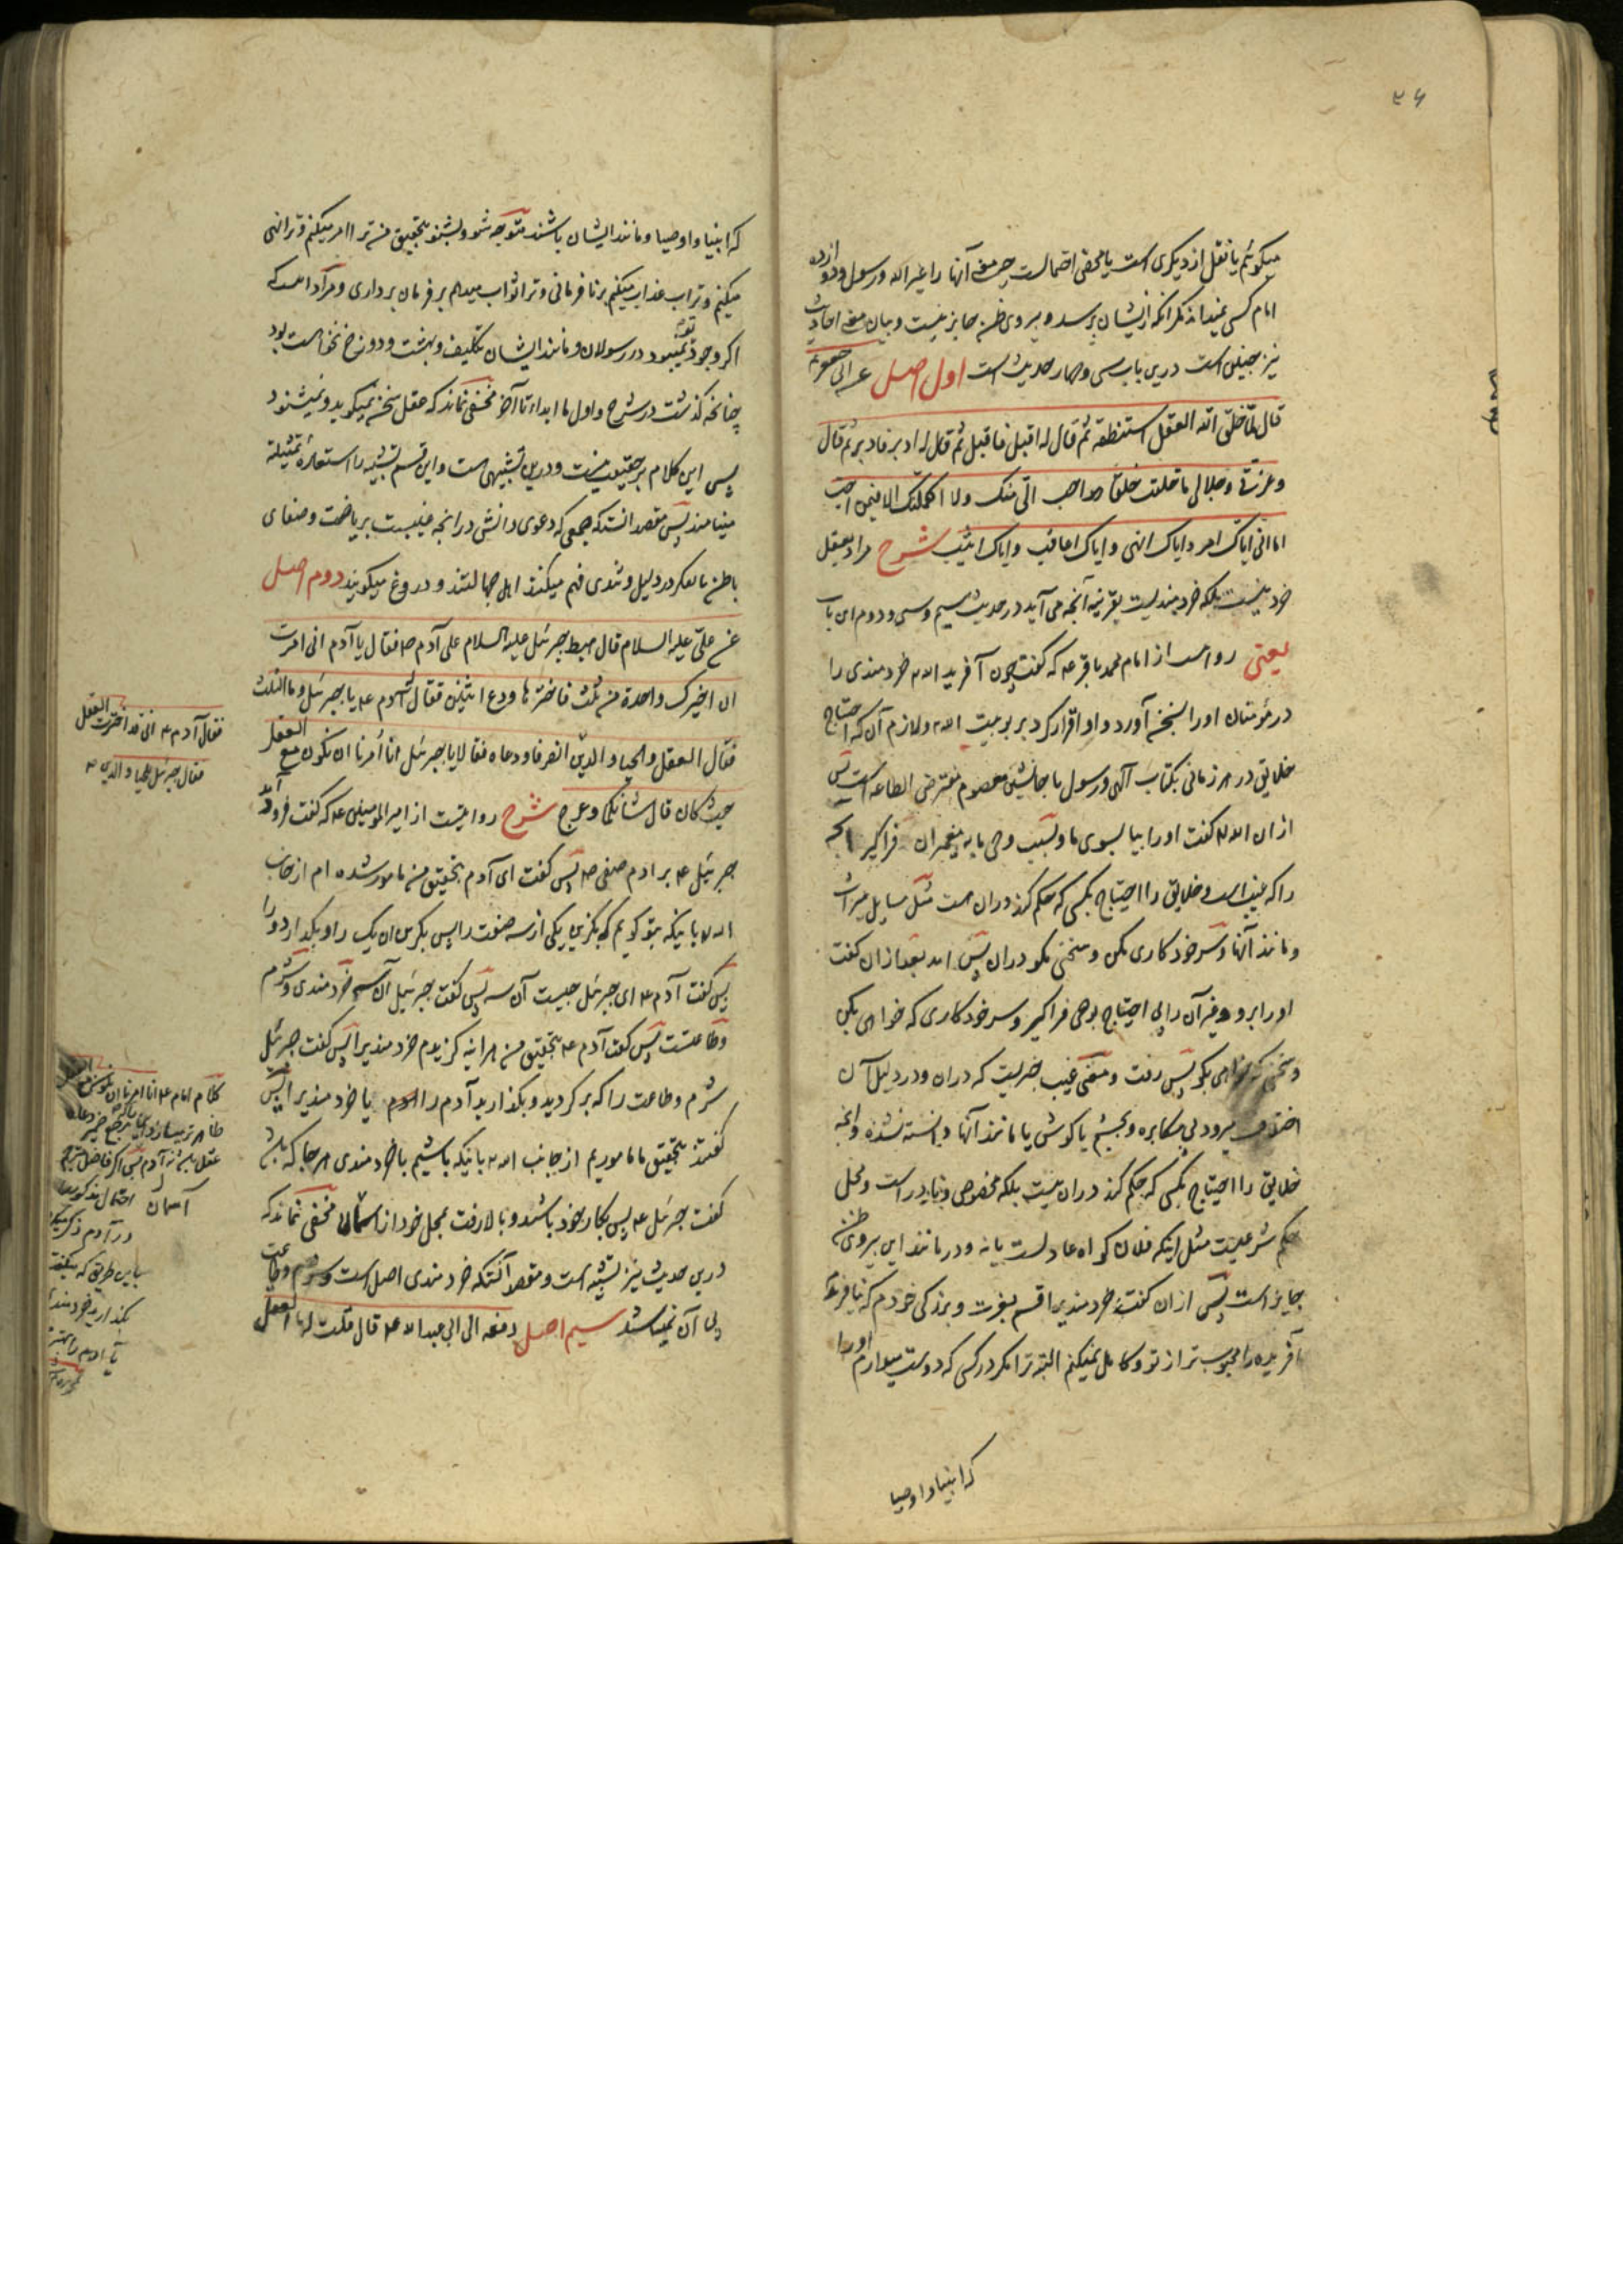 ۳۶
میکوئیم یا نقل از دیگری است یا محض احتمالست چه معنی آنها را غیر الله و رسول و دوازده
امام کسی نمیداند مگر آنکه از ایشان پرسد و پیروی ظن جایز نیست و بیان معنی احادیث
نیز چنین است درین باب سی و چهار حدیث است اول اصل عن ابی جعفر ع
قال لما خلق الله العقل استنطقه ثم قال له اقبل فاقبل ثم قال له ادبر فادبر ثم قال
وعزتی وجلالی ما خلقت خلقا هو احب الی منک ولا اکملتک الا فیمن احب
اما انی ایاک امر وایاک انهی وایاک اعاقب وایاک اثیب شرح مراد بعقل
خرد نیست بلکه خردمندیست بقرینه آنچه می آید در حدیث سیم و سی و دوم این باب
یعنی روایت از امام محمد باقر ع که گفت چون آفرید الله خردمندی را
در مؤمنان او را بسخن آورد و او اقرار کرد بربوبیت الله ولازم آن که احتیاج
خلایق در هر زمانی بکتاب آلهی و رسول یا جانشین معصوم مفترض الطاعه است پس
از ان الله گفت او را بیا بسوی ما و بسبب وحی ما به پیغمبران فراگیر آنچه
را که غیب است و خلایق را احتیاج بکسی که حکم کند دران هست مثل مسایل میراث
و مانند آنها و سر خود کاری مکن و سخنی مگو دران پس بعد از ان گفت
او را برو و غیر آن را بی احتیاج بوحی فراگیر و سر خود کاری که خواهی بکن
و سخنی که خواهی بگو پس رفت و معنی غیب چیزیست که دران و در دلیل آن
اختلاف میرود بی مکابره و بچشم یا گوش یا مانند آنها دانسته نشده و آنچه
خلایق را احتیاج بکسی که حکم کند دران نیست بلکه مخصوص و نادر است و محل
حکم شرعیست مثل اینکه فلان گواه عادلست یا نه و در مانند این پیروی ظن
جایز است پس از ان گفت خردمندیرا قسم بعزت و بزرگی خودم که نیافریدم
آفریده را محبوب تر از تو و کامل نمیکنم البته ترا مگر در کسی که دوست میدارم او را
که انبیا و اوصیا
که انبیا و اوصیا و مانند ایشان باشند متوجه شو و بشنو بتحقیق من ترا امر میکنم و ترا نهی
میکنم و ترا عذاب میکنم بر نافرمانی و ترا ثواب میدهم بر فرمان برداری و مراد اینست که
اگر وجود تو نمیبود در رسولان و مانند ایشان تکلیف و بهشت و دوزخ نخواست بود
چنانچه گذشت در شرح و اول ما ابداء تا آخر مخفی نماند که عقل سخن نمیگوید و نمیشنود
پس این کلام بر حقیقت نیست و درین تشبیهی است و این قسم تشبیه را استعاره تمثیلیه
مینامند پس مقصد انست که جمعی که دعوی دانش در آنچه غیبست بریاضت و صفای
باطن یا بفکر در دلیل و تندی فهم میکنند اهل جهالتند و دروغ میگویند دوم اصل
عن علی علیه السلام قال هبط جبرئیل علیه السلام علی آدم ع فقال یا آدم انی امرت
ان اخیرک واحدة من ثلث فاخترها ودع اثنین فقال آدم ع یا جبرئیل وما الثلث
فقال العقل والحیاء والدین انصرفا ودعاه فقالا یا جبرئیل انا امرنا ان نکون مع العقل
حیث کان قال شانکما وعرج شرح روایتست از امیر المؤمنین ع که گفت فرود آمد
جبرئیل ع بر ادم صفی ع پس گفت ای آدم بتحقیق من مامور شده ام از جانب
الله باینکه بتو گویم که بگزین یکی از سه صفت را پس بگزین ان یک را و بگذار دو را
پس گفت آدم ع ای جبرئیل چیست آن سه پس گفت جبرئیل آن سه خردمندی و شرم
و طاعتست پس گفت آدم ع بتحقیق من هر اینه گزیدم خردمندیرا پس گفت جبرئیل
شرم و طاعت را که برگردید و بگذارید آدم را با خردمندیرا پس
گفتند بتحقیق ما ماموریم از جانب الله باینکه باشیم با خردمندی هر جا که باشد
گفت جبرئیل ع پس بکار خود باشید و بالا رفت بمحل خود از اسمان مخفی نماند که
درین حدیث نیز تشبیه است و مقصد آنستکه خردمندی اصل است و شرم و طاعت
بی آن نمیباشد سیم اصل رفعه الی ابی عبد الله ع قال قلت له ما العقل
فقال آدم ع انی قد اخترت العقل
فقال جبرئیل للحیاء والدین
کلام امام ع انا امرنا ان نکون مع
آسمان
احتمال مذکور
باین طریق که میگفت
بگذارید خردمندی